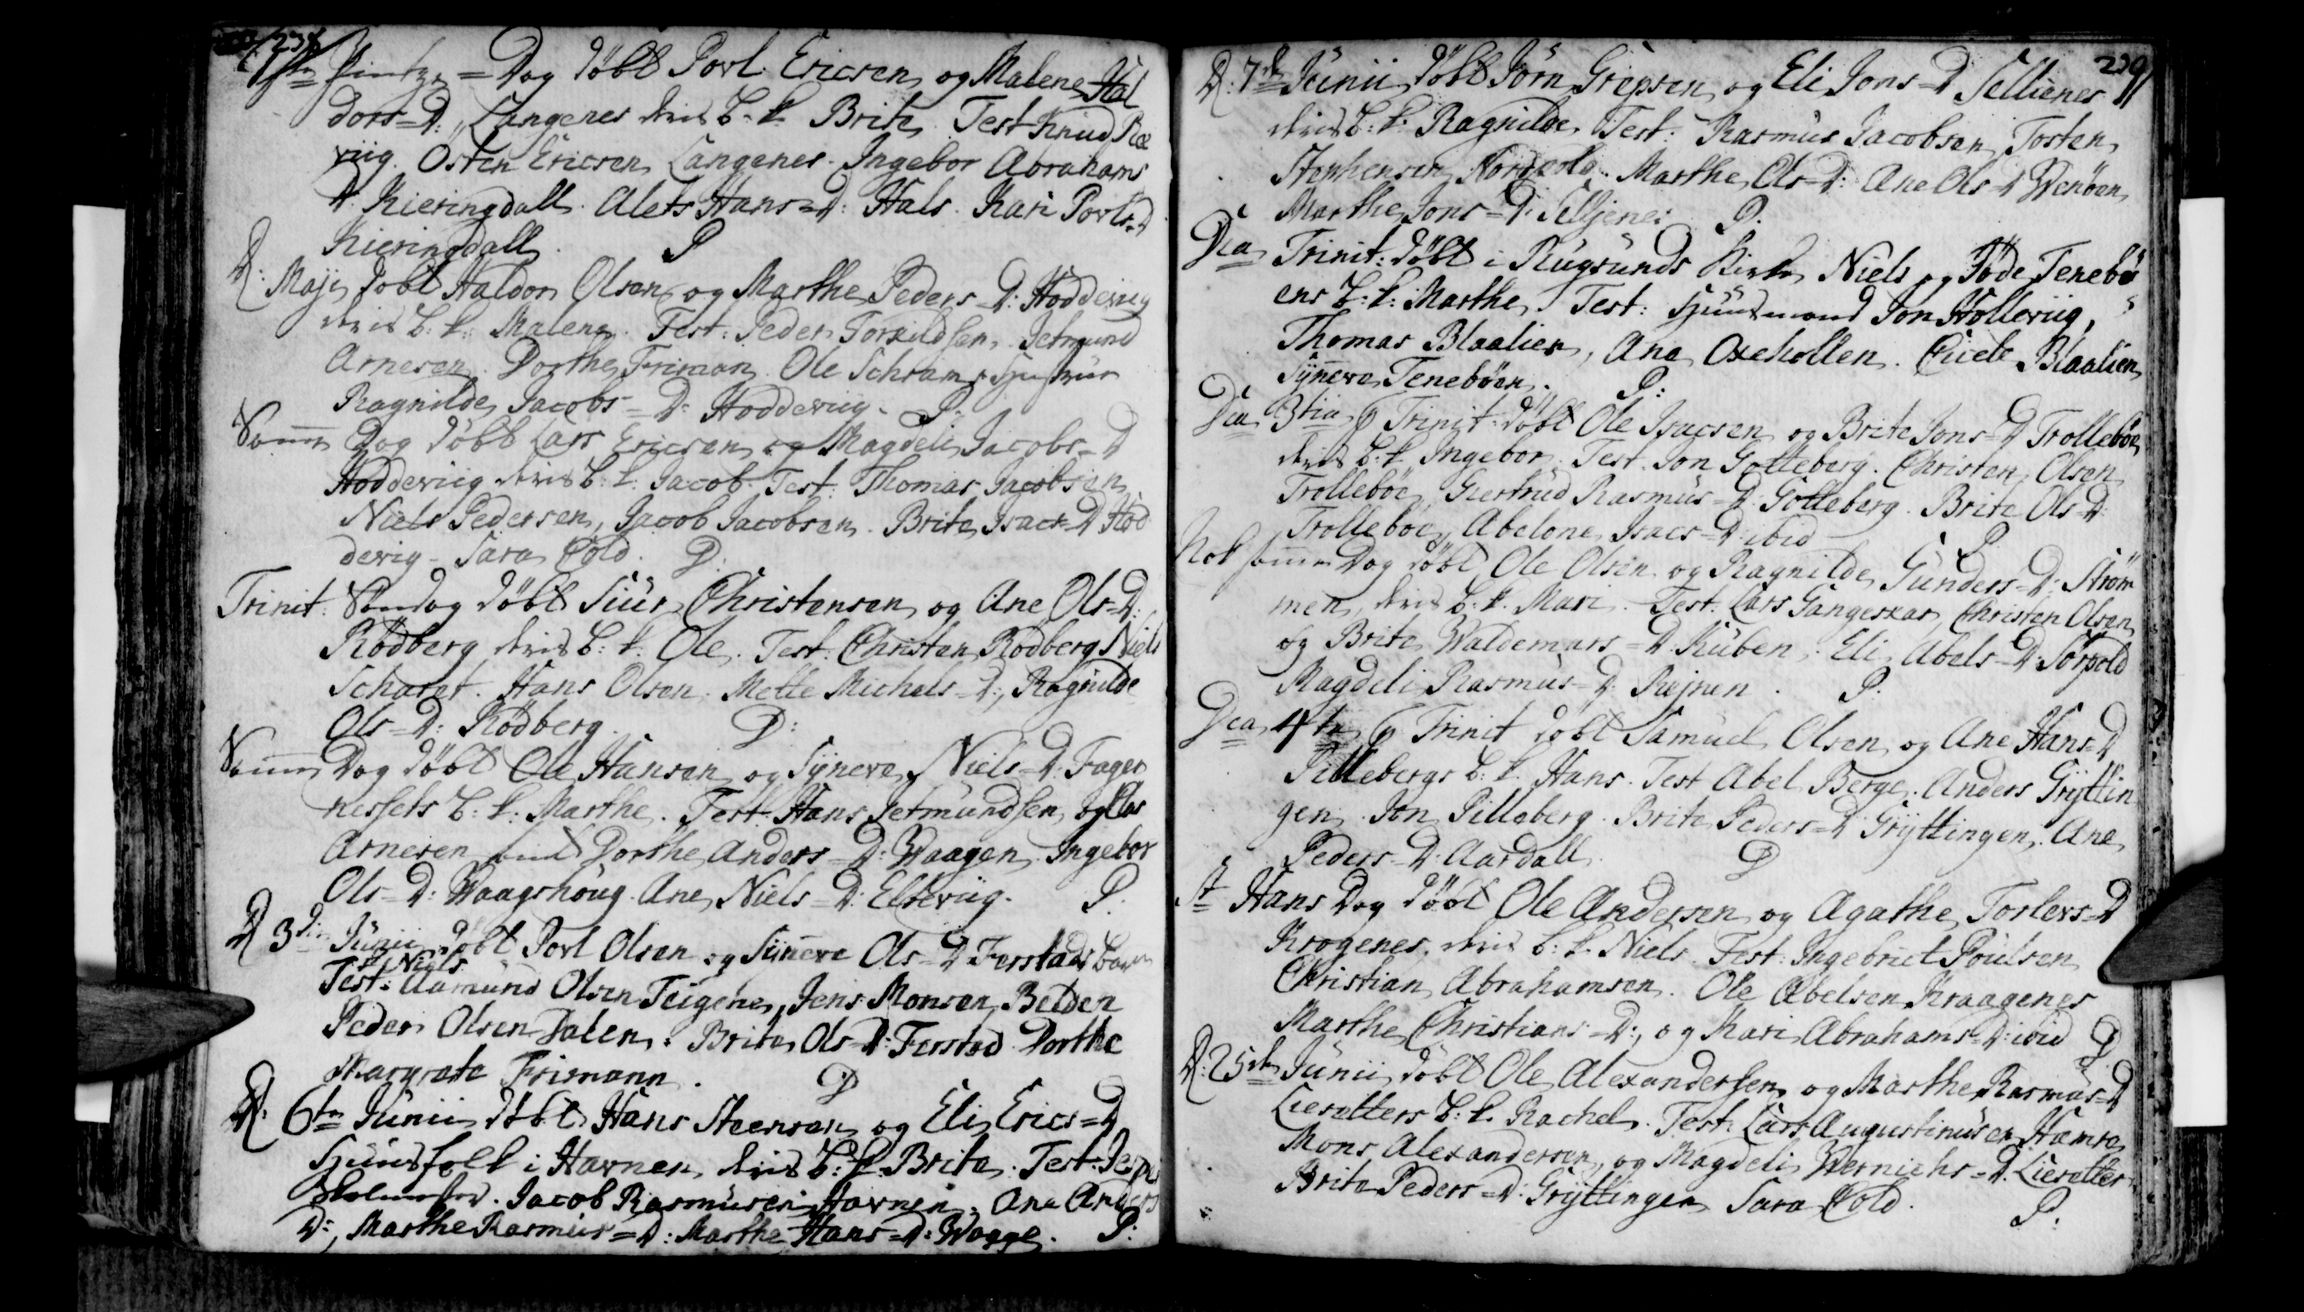 238
Pintze=Dag döbt Povl Ericsen og Malene Hal
dors=D: Langenes deris b. k. Brite. Test Knud Ræ
viig. Osten Ericsen Langenes. Ingebor Abrahams
D Kieringdall. Alets Hans=D: Hals. Kari Povls=D
Kieringdall. P
D: Maji döbt Haldor Olsen og Marthe Peders=D: Hoddeviig
deris b: k: Malene. Test: Peder Torkildsen. Jetmund
Arnesen. Dorthe Friman. Ole Schrams Hustrue
Ragnilde Jacobs=D: Hoddeviig. P.
Samme Dag döbt Lars Ericsen og Magdeli Jacobs=D
Hoddeviig deris b: k. Jacob. Test: Thomas Jacobsen
Niels Pedersen, Jacob Jacobsen. Brite Isacs=D Hod
devig. Sara Cold. P.
Trinit: Söndag döbt Siur Christensen og Ane Ols=D:
Rödberg deris b: k. Ole. Test. Christen Rödberg Niels
Scharet. Hans Olsen. Mette Michels=D:, Ragnilde
Ols=D: Rödberg. P:
Samme Dag döbt Ole Hansen og Synneve Niels=D: Fager
nessets b: k: Marthe. Test. Hans Jetmundsen, og Elias
Arnesen Dorthe Anders=D: Waagen, Ingebor
Ols=D: Waagshoug. Ane Niels=D: Elsteviig. P.
D 3die Junii döbt Povl Olsen og Synneve Ols=D Ferstads barn
Niels
Test: Aamund Olsen Teigene, Jens Monsen, Belden
Peder Olsen Dalen. Brite Ols=D: Ferstad. Dorthe
Margrete Frimann. P
D. 6te Junii döbt Hans Steensen og Eli Erics=D
Huusfolk i Havnen deris b: k Brita. Test: Jesper
Jacob Rasmusen Havnen. Ane Anders
D:, Marthe Rasmus=D: Marthe Hans=D: Waage. P:
239
D: 7de Junii döbt Jörn Grepsen og Eli Jons=D Sellienes
deris b: k: Ragnilde. Test: Rasmus Jacobsen, Tosten
Stephensen Nordpold. Marthe Ols=D: Ane Ols=D Wenöen,
Marthe Jons=D: Selljenes P.
Dca Trinit: döbt i Rugsunds Kirke Niels og Töde Teneböe
ens b: k: Marthe. Test: Huusmand Jon Holleviig,
Thomas Blaalien, Ane Oxehollen. Cicele Blaalien,
Synneve Teneböen. P:
Dca 3tia p Trinit döbt Ole Isacsen og Brite Jons=D Trolleböe
deris b: k. Ingebor. Test. Jon Gotteberg. Christen Olsen
Trolleböe, Giertrud Rasmus=D: Gotteberg. Brite Ols=D:
Trolleböe, Abelone Isacs=D: ibid P
Nok samme Dag döbt Ole Olsen og Ragnilde Gunders=D: Ström
men, deris b: k. Mari. Test. Lars Gangerskar, Christen Olsen,
og Brite Waldemars=D. Kuben, Eli Abels=D: Sörpold
Magdeli Rasmus=D: Rejnen. P.
Dca 4te p Trinit döbt Samuel Olsen og Ane Hans=D
Pillebergs b: k. Hans. Test Abel Berge. Anders Gryttin
gen. Jon Pilleberg. Brite Peders=D Gryttingen. Ane
Peders=D: Aardall P
St Hans Dag döbt Ole Andersen og Agathe Torlevs=D
Krogenes, deris b: k. Niels. Test. Ingebrict Poulsen,
Christian Abrahamsen. Ole Abelsen Kraagenes
Marthe Christians=D:, og Mari Abrahams=D: ibid P
D: 25de Junii döbt Ole Alexandersen og Marthe Rasmus=D
Liesetters b: k. Rachel. Test. Lars Augustinusen Hamre
Mons Alexandersen, og Magdeli Wernichs=D. Liesetter.
Brite Peders=D: Gryttingen Sara Cold. P.